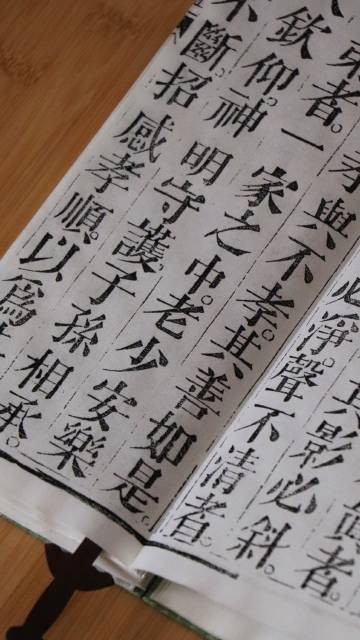 者。
其影必斜。
聲不清者。
與不孝。其善如是。
者。一家之中。老少安樂
欽仰。神明守護。子孫相承。
不斷。招感孝順。以為